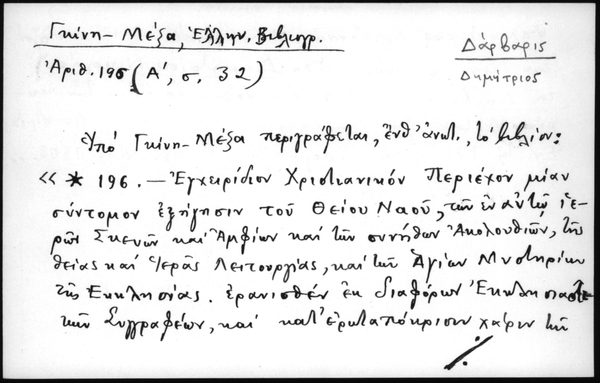 Γκίνη-Μέξα, Ἑλλην. Βιβλιογρ.
Δάρβαρις
Δημήτριος
Ἀριθ. 196 (Α', σ. 32)
Ὑπό Γκίνη-Μέξα περιγράφεται, ἔνθ' ἀνωτ., τό βιβλίον:
«* 196. — Ἐγχειρίδιον Χριστιανικόν Περιέχον μίαν
σύντομον ἐξήγησιν τοῦ Θείου Ναοῦ, τῶν ἐν αὐτῷ ἱε-
ρῶν Σκευῶν καί Ἀμφίων καί τῶν συνήθων Ἀκολουθιῶν, τῆς
θείας καί Ἱερᾶς Λειτουργίας, καί τῶν Ἁγίων Μυστηρίων
τῆς Ἐκκλησίας. ἐρανισθέν ἐκ διαφόρων Ἐκκλησιαστι-
κῶν Συγγραφέων, καί κατ' ἐρωταπόκρισιν χάριν τῶν
./.